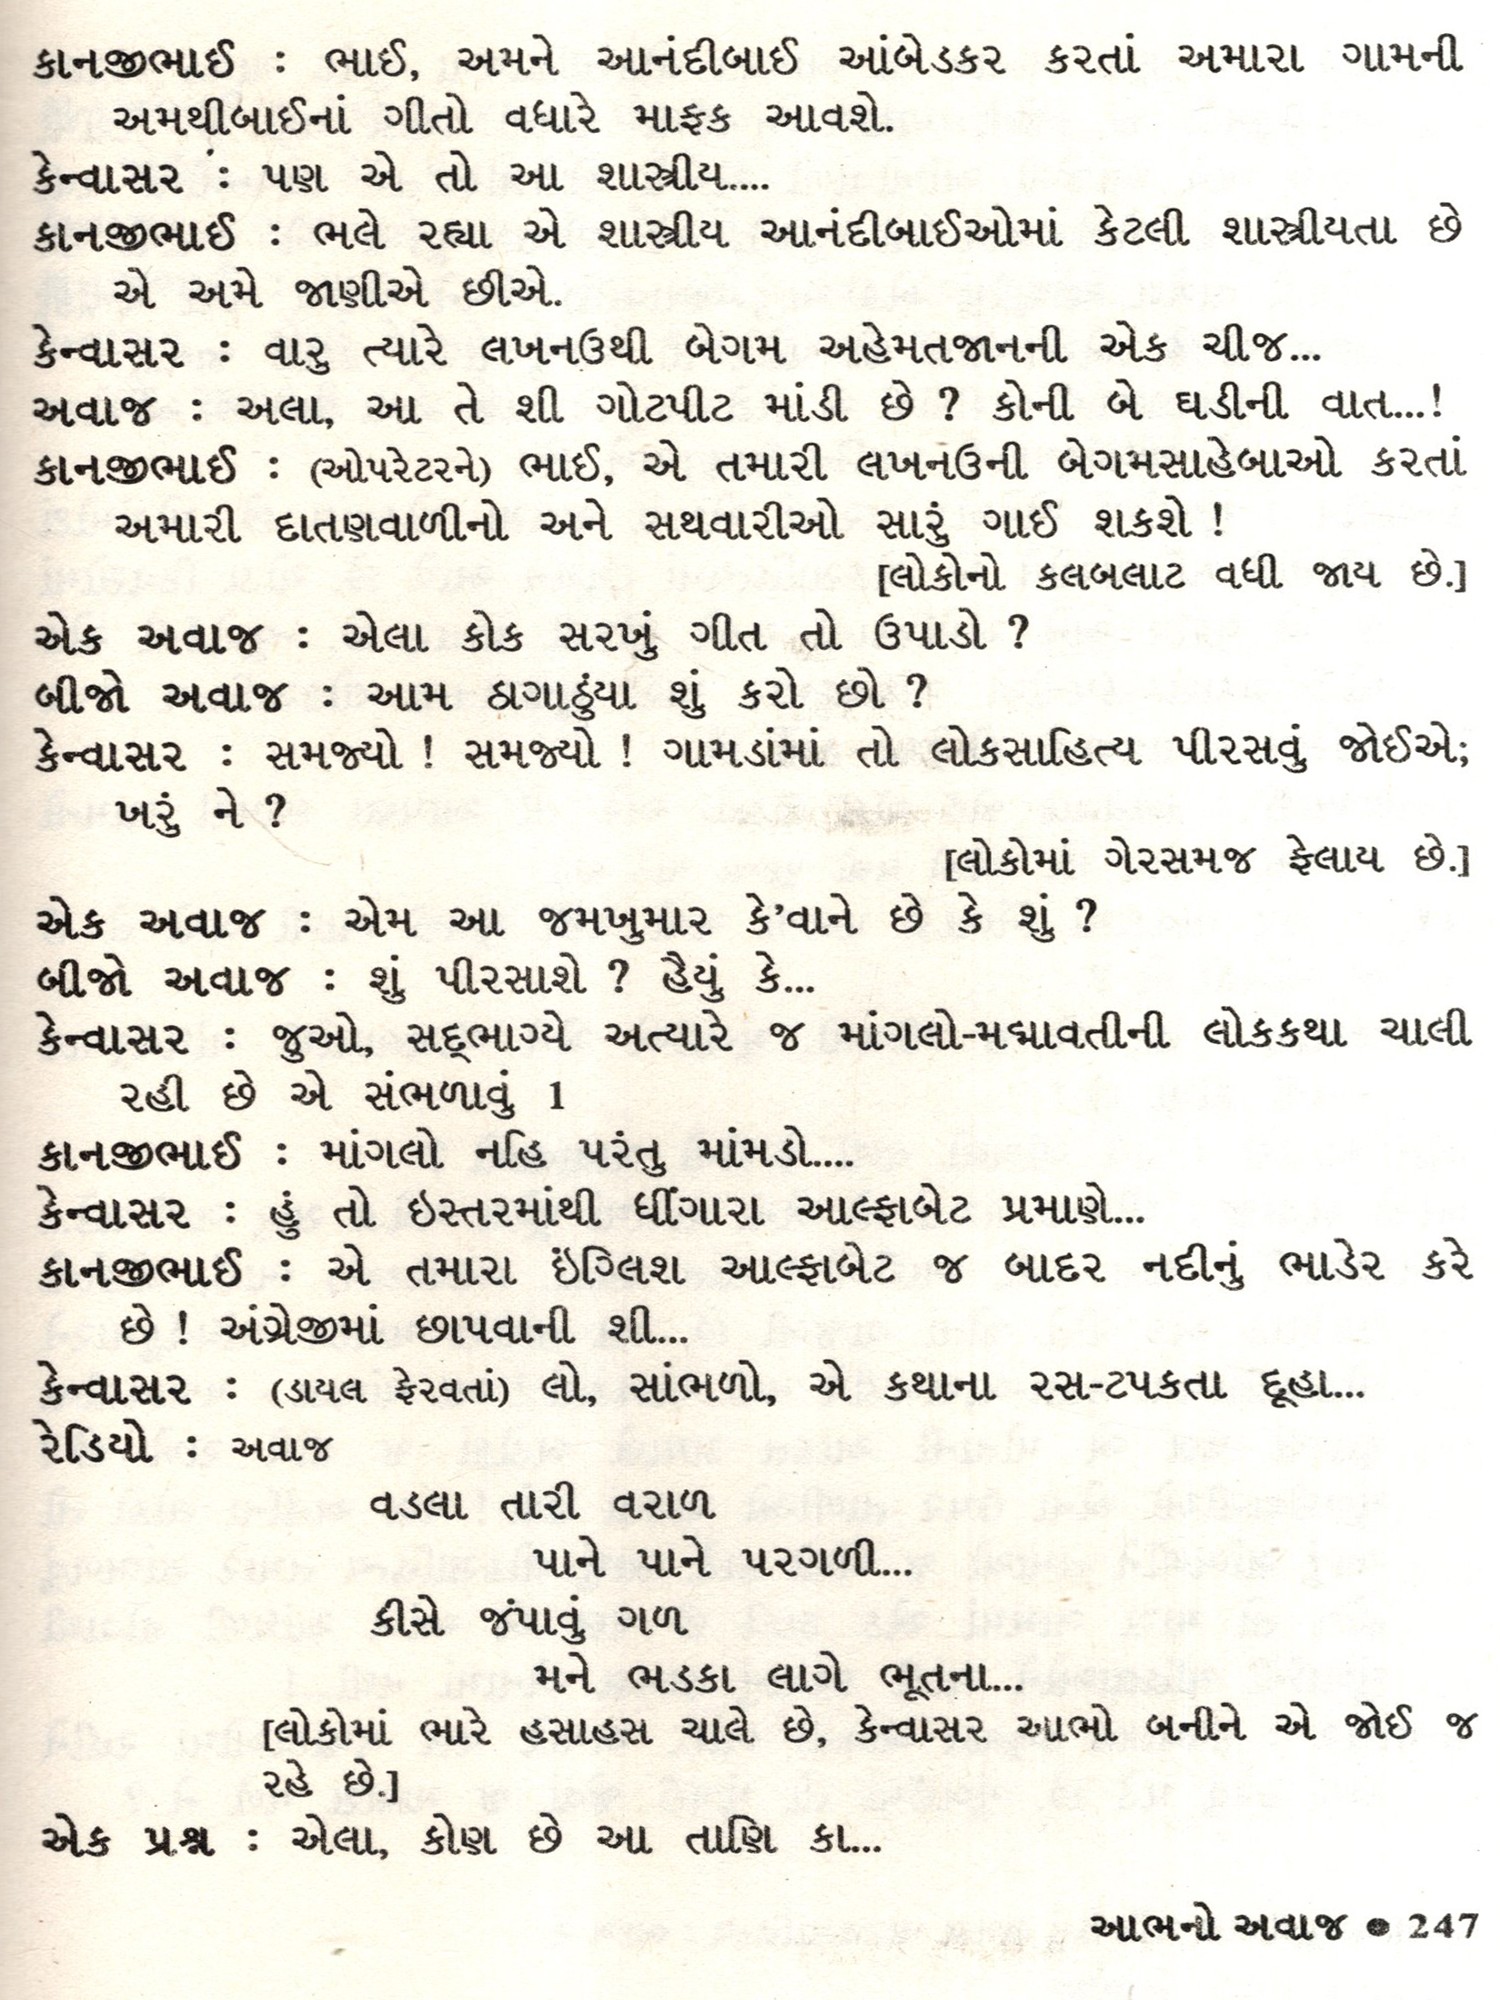 કાનજીભાઈ : ભાઈ, અમને આનંદીબાઈ આંબેડકર કરતાં અમારા ગામની
અમથીબાઈનાં ગીતો વધારે માફક આવશે.
કેન્વાસર : પણ એ તો આ શાસ્ત્રીય....
કાનજીભાઈ : ભલે રહ્યા એ શાસ્ત્રીય આનંદીબાઈઓમાં કેટલી શાસ્ત્રીયતા છે
એ અમે જાણીએ છીએ.
કેન્વાસર : વારુ ત્યારે લખનઉથી બેગમ અહેમતજાનની એક ચીજ...
અવાજ : અલા, આ તે શી ગોટપીટ માંડી છે ? કોની બે ઘડીની વાત...!
કાનજીભાઈ : (ઓપરેટરને) ભાઈ, એ તમારી લખનઉની બેગમસાહેબાઓ કરતાં
અમારી દાતણવાળીનો અને સથવારીઓ સારું ગાઈ શકશે !
[લોકોનો કલબલાટ વધી જાય છે.]
એક અવાજ : એલા કોક સરખું ગીત તો ઉપાડો ?
બીજો અવાજ : આમ ઠાગાઠુંયા શું કરો છો ?
કેન્વાસર : સમજ્યો ! સમજ્યો ! ગામડાંમાં તો લોકસાહિત્ય પીરસવું જોઈએ;
ખરું ને ?
[લોકોમાં ગેરસમજ ફેલાય છે.]
એક અવાજ : એમ આ જમખુમાર કે'વાને છે કે શું ?
બીજો અવાજ : શું પીરસાશે ? હૈયું કે...
કેન્વાસર : જુઓ, સદ્ભાગ્યે અત્યારે જ માંગલો-મદ્માવતીની લોકકથા ચાલી
રહી છે એ સંભળાવું 1
કાનજીભાઈ : માંગલો નહિ પરંતુ માંમડો....
કેન્વાસર : હું તો ઇસ્તરમાંથી ધીંગારા આલ્ફાબેટ પ્રમાણે...
કાનજીભાઈ : એ તમારા ઇંગ્લિશ આલ્ફાબેટ જ બાદર નદીનું ભાડેર કરે
છે ! અંગ્રેજીમાં છાપવાની શી...
કેન્વાસર : (ડાયલ ફેરવતાં) લો, સાંભળો, એ કથાના રસ-ટપકતા દૂહા...
રેડિયો : અવાજ
વડલા તારી વરાળ
પાને પાને પરગળી...
કીસે જંપાવું ગળ
મને ભડકા લાગે ભૂતના...
[લોકોમાં ભારે હસાહસ ચાલે છે, કેન્વાસર આભો બનીને એ જોઈ જ
રહે છે.]
એક પ્રશ્ન : એલા, કોણ છે આ તાણિ કા...
આભનો અવાજ ● 247